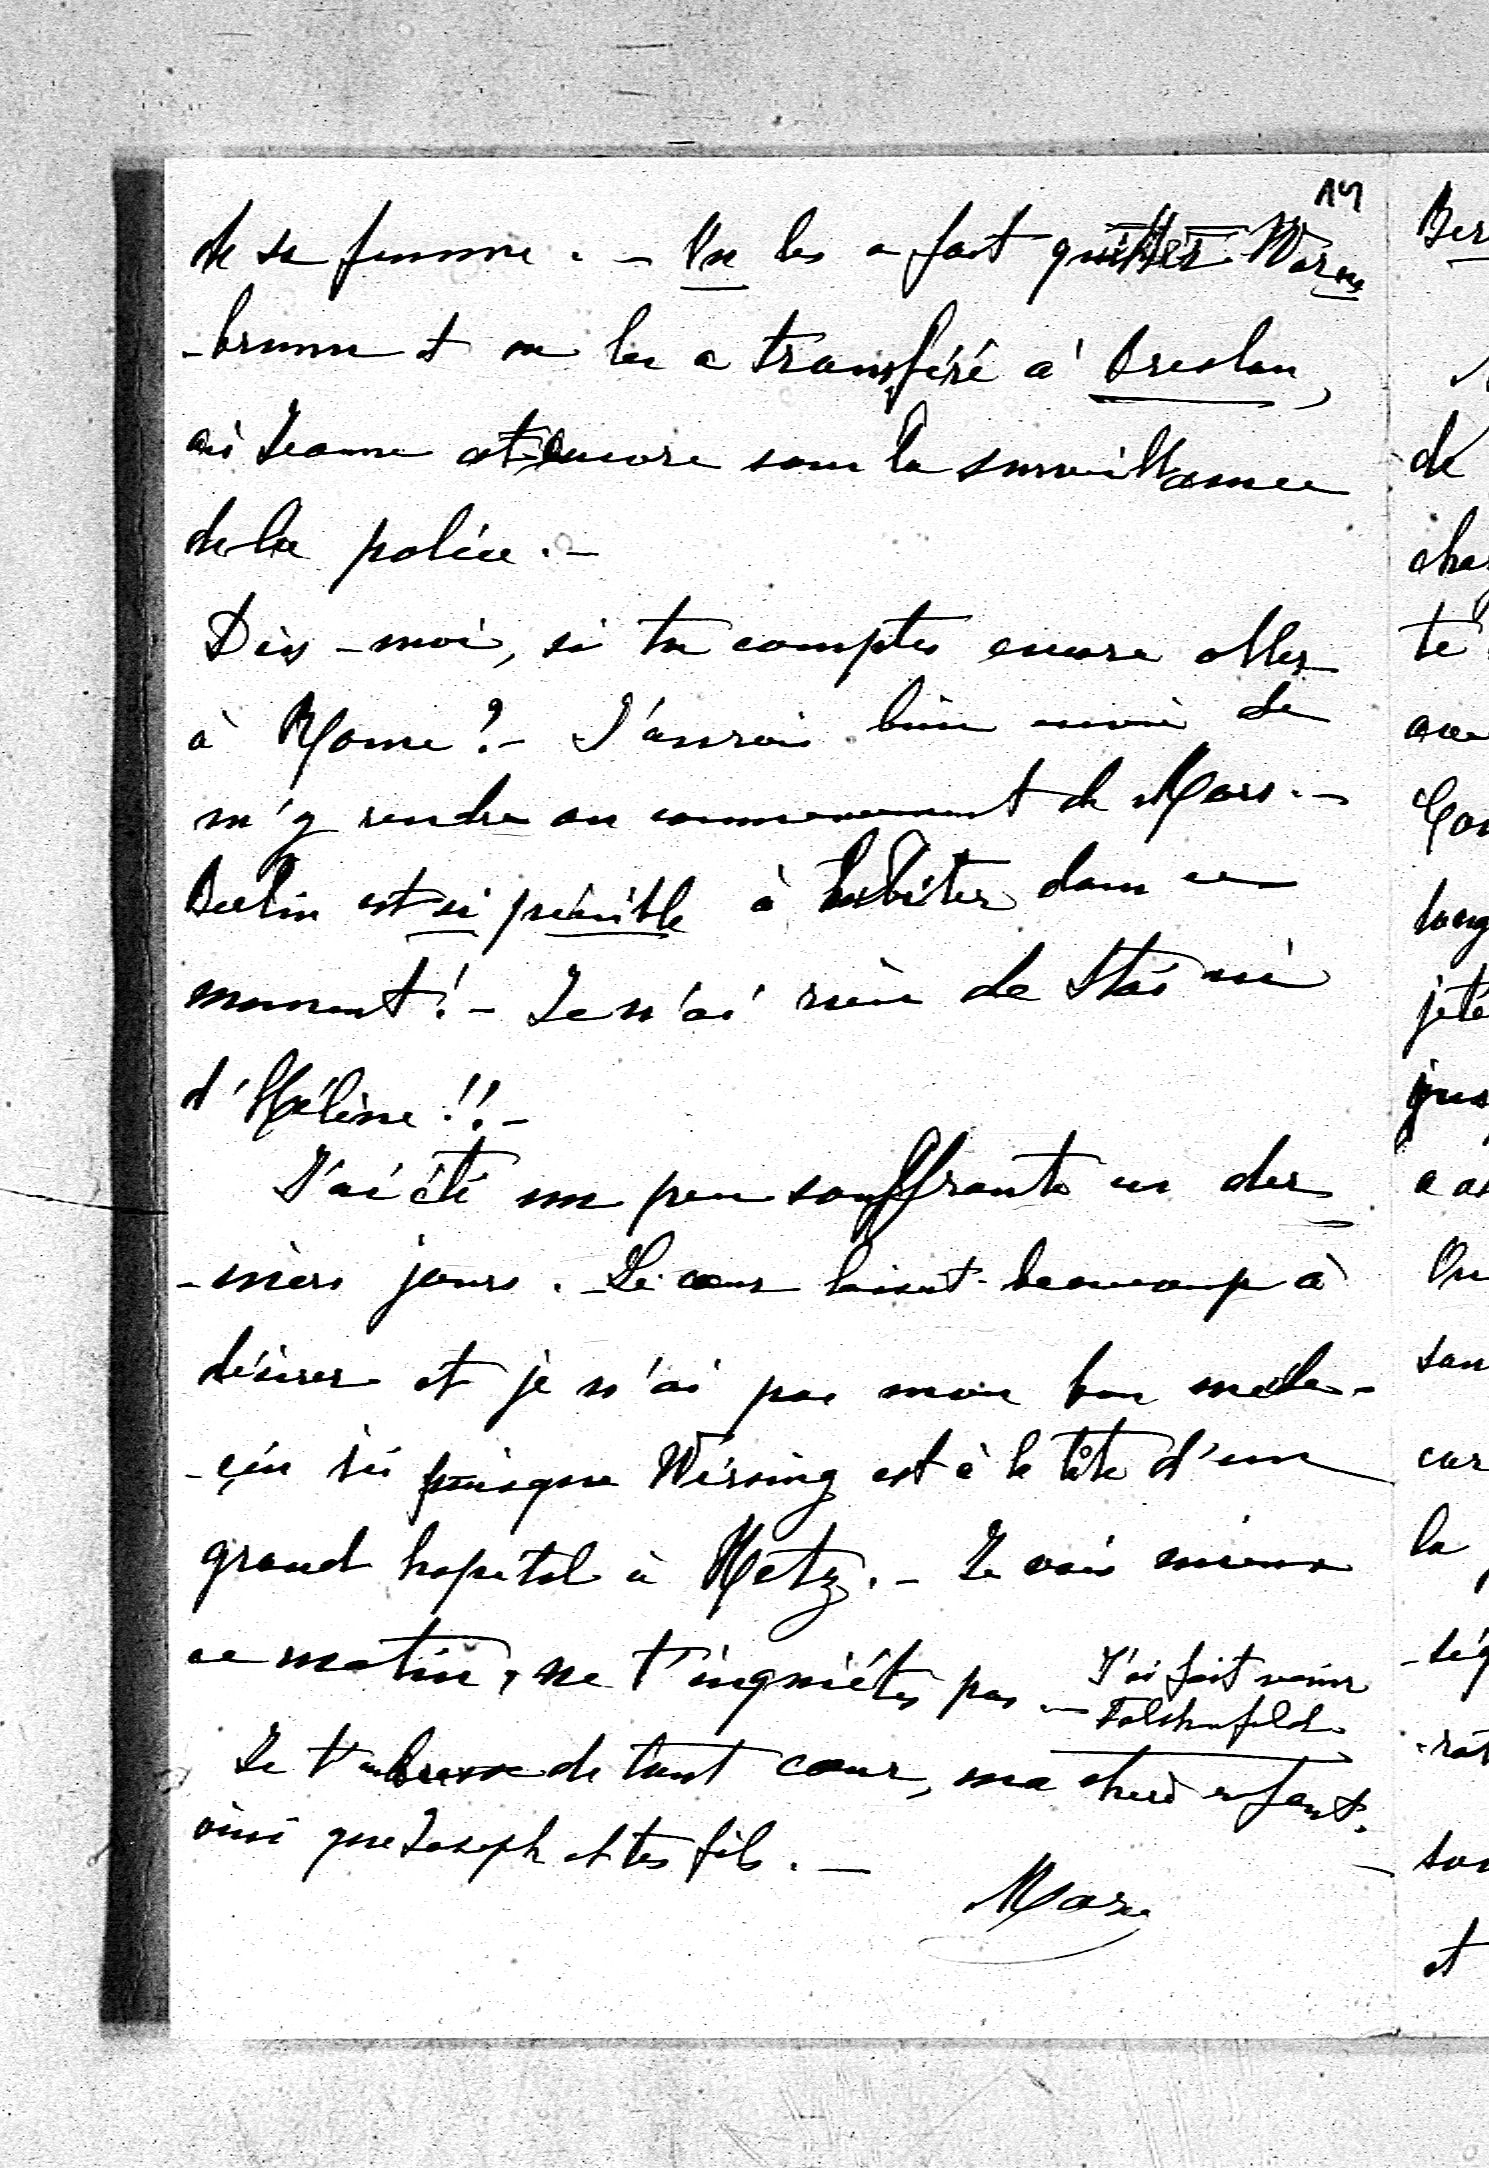 de sa femme. - On les a fait quitter Warm
-brunn et on les a transféré à Breslau,
où Jeanne est encore sous la surveillance
de la police. -
Dis-moi, si tu comptes encore aller
à Rome? - J'aurais bien envie de
m'y rendre au commencement de Mars. -
Berlin est si pénible à habiter dans ce
moment! - Je n'ai rien de Stas ni
d'Hélène!! -
J'ai été un peu souffrante ces der
-niers jours. - Le cœur laisait beaucoup à
désirer et je n'ai pas mon bon méde-
-cin ici puisque Wirsing est à la tête d'un
grand hopital à Metz. - Je vais mieux
ce matin, ne t'inquiètes pas - J'ai fait venir
Falkenfeld
Je t'embrasse de tout cœur, ma chère enfant,
ainsi que Joseph et tes fils. -
Marie
Ber
de
té
jeté
a
On
car
la
et